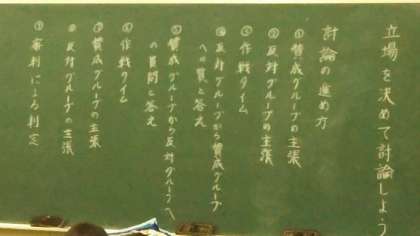 立場を決めて討論しよう
討論の進め方
①賛成グループの主張
②反対グループの主張
③作戦タイム
④反対グループから賛成グループ
への質問と答え
⑤賛成グループから反対グループへ
の質問と答え
⑥作戦タイム
⑦賛成グループの主張
⑧反対グループの主張
⑨審判による判定